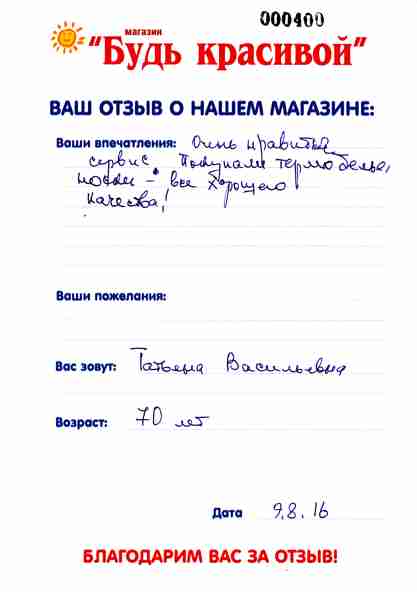 000400
магазин
"Будь красивой"
ВАШ ОТЗЫВ О НАШЕМ МАГАЗИНЕ:
Ваши впечатления: Очень нравится
сервис. Покупали термобелье,
носки - все хорошего
качества!
Ваши пожелания:
Вас зовут: Татьяна Васильевна
Возраст: 70 лет
Дата 9.8.16
БЛАГОДАРИМ ВАС ЗА ОТЗЫВ!